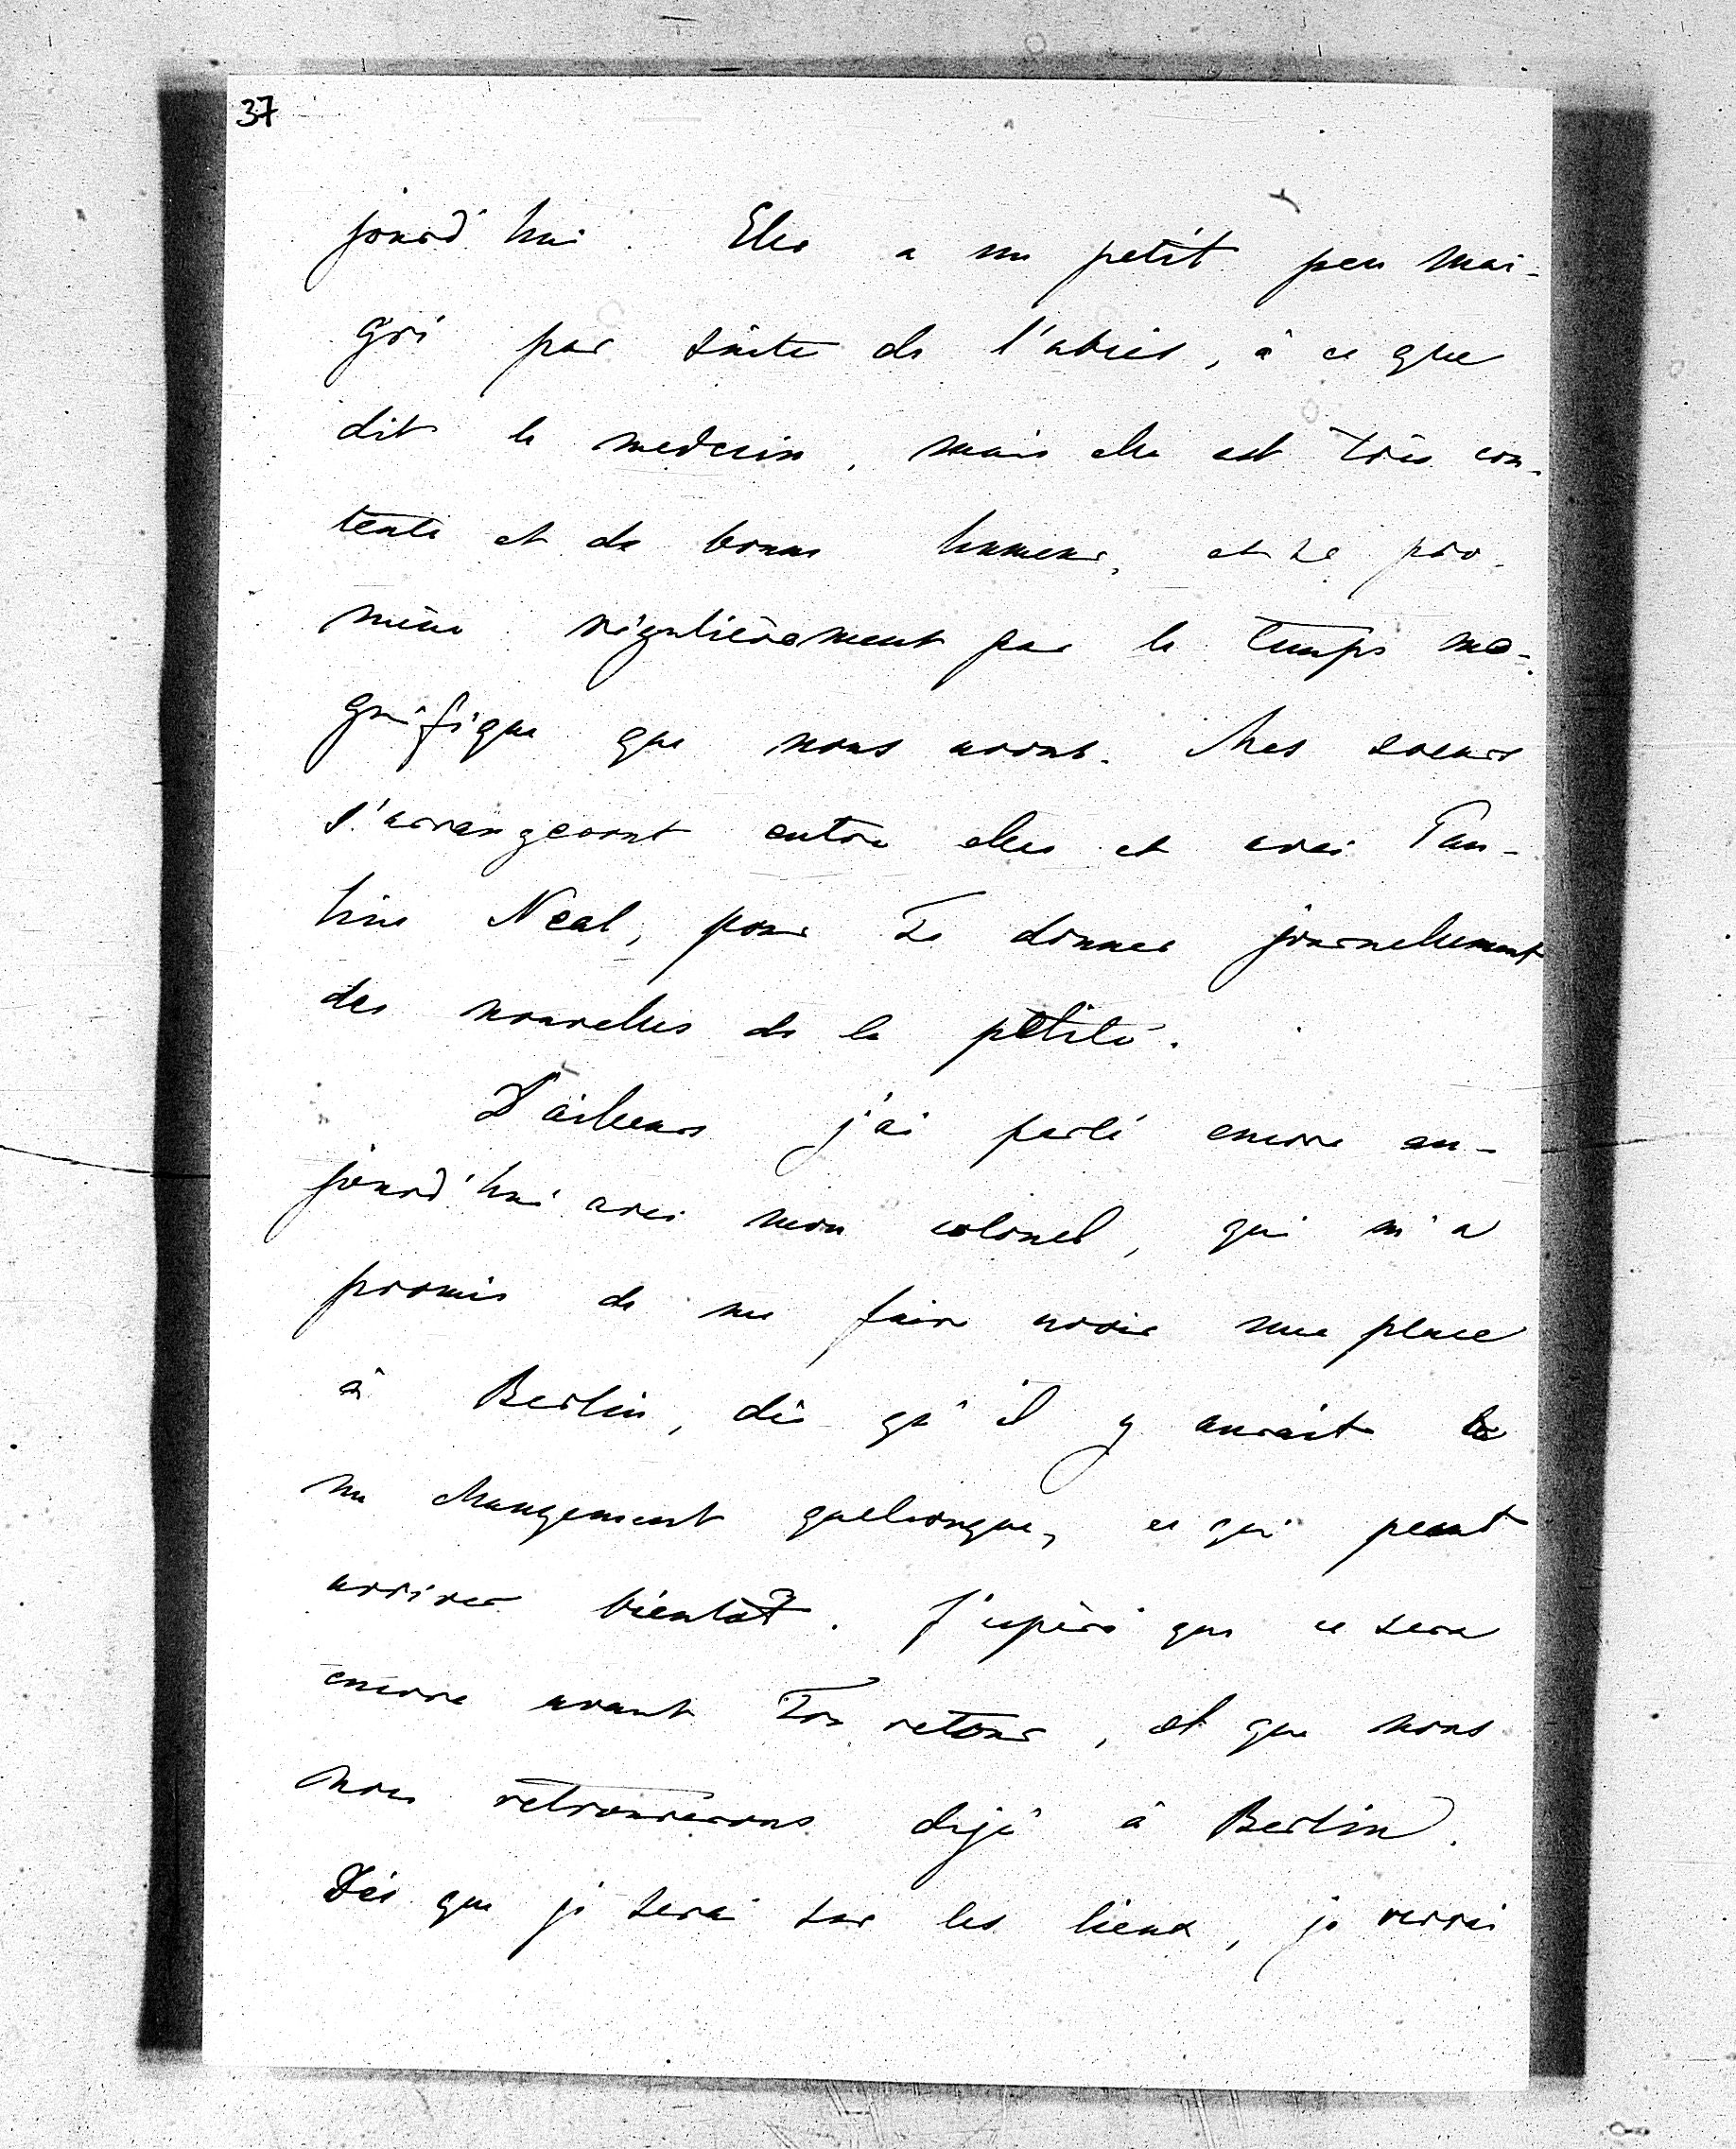 37
jourd'hui. Elle a un petit peu mai-
gri par suite de l'abcès, à ce que
dit le medecin, mais elle est très con-
tente et de bonne humeur, et se pro-
mène régulièrement par le temps ma-
gnifique que nous avons. Mes soeurs
s'arrangeront entre elles et avec Pau-
line Neal, pour Te donner journellement
des nouvelles de la petite.
D'ailleurs j'ai parlé encore au-
jourd'hui avec mon colonel, qui m'a
promis de me faire avoir une place
à Berlin, dès qu'il y aurait
un changement quelconque, ce qui peut
arriver bientôt. J'espère que ce sera
encore avant Ton retour, et que nous
nous retrouverons dejà à Berlin.
Dès que je serai sur les lieux, je verrai